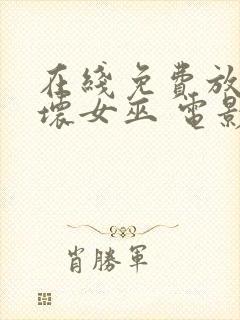 在綫免費放
壞女巫 電影
肖勝軍